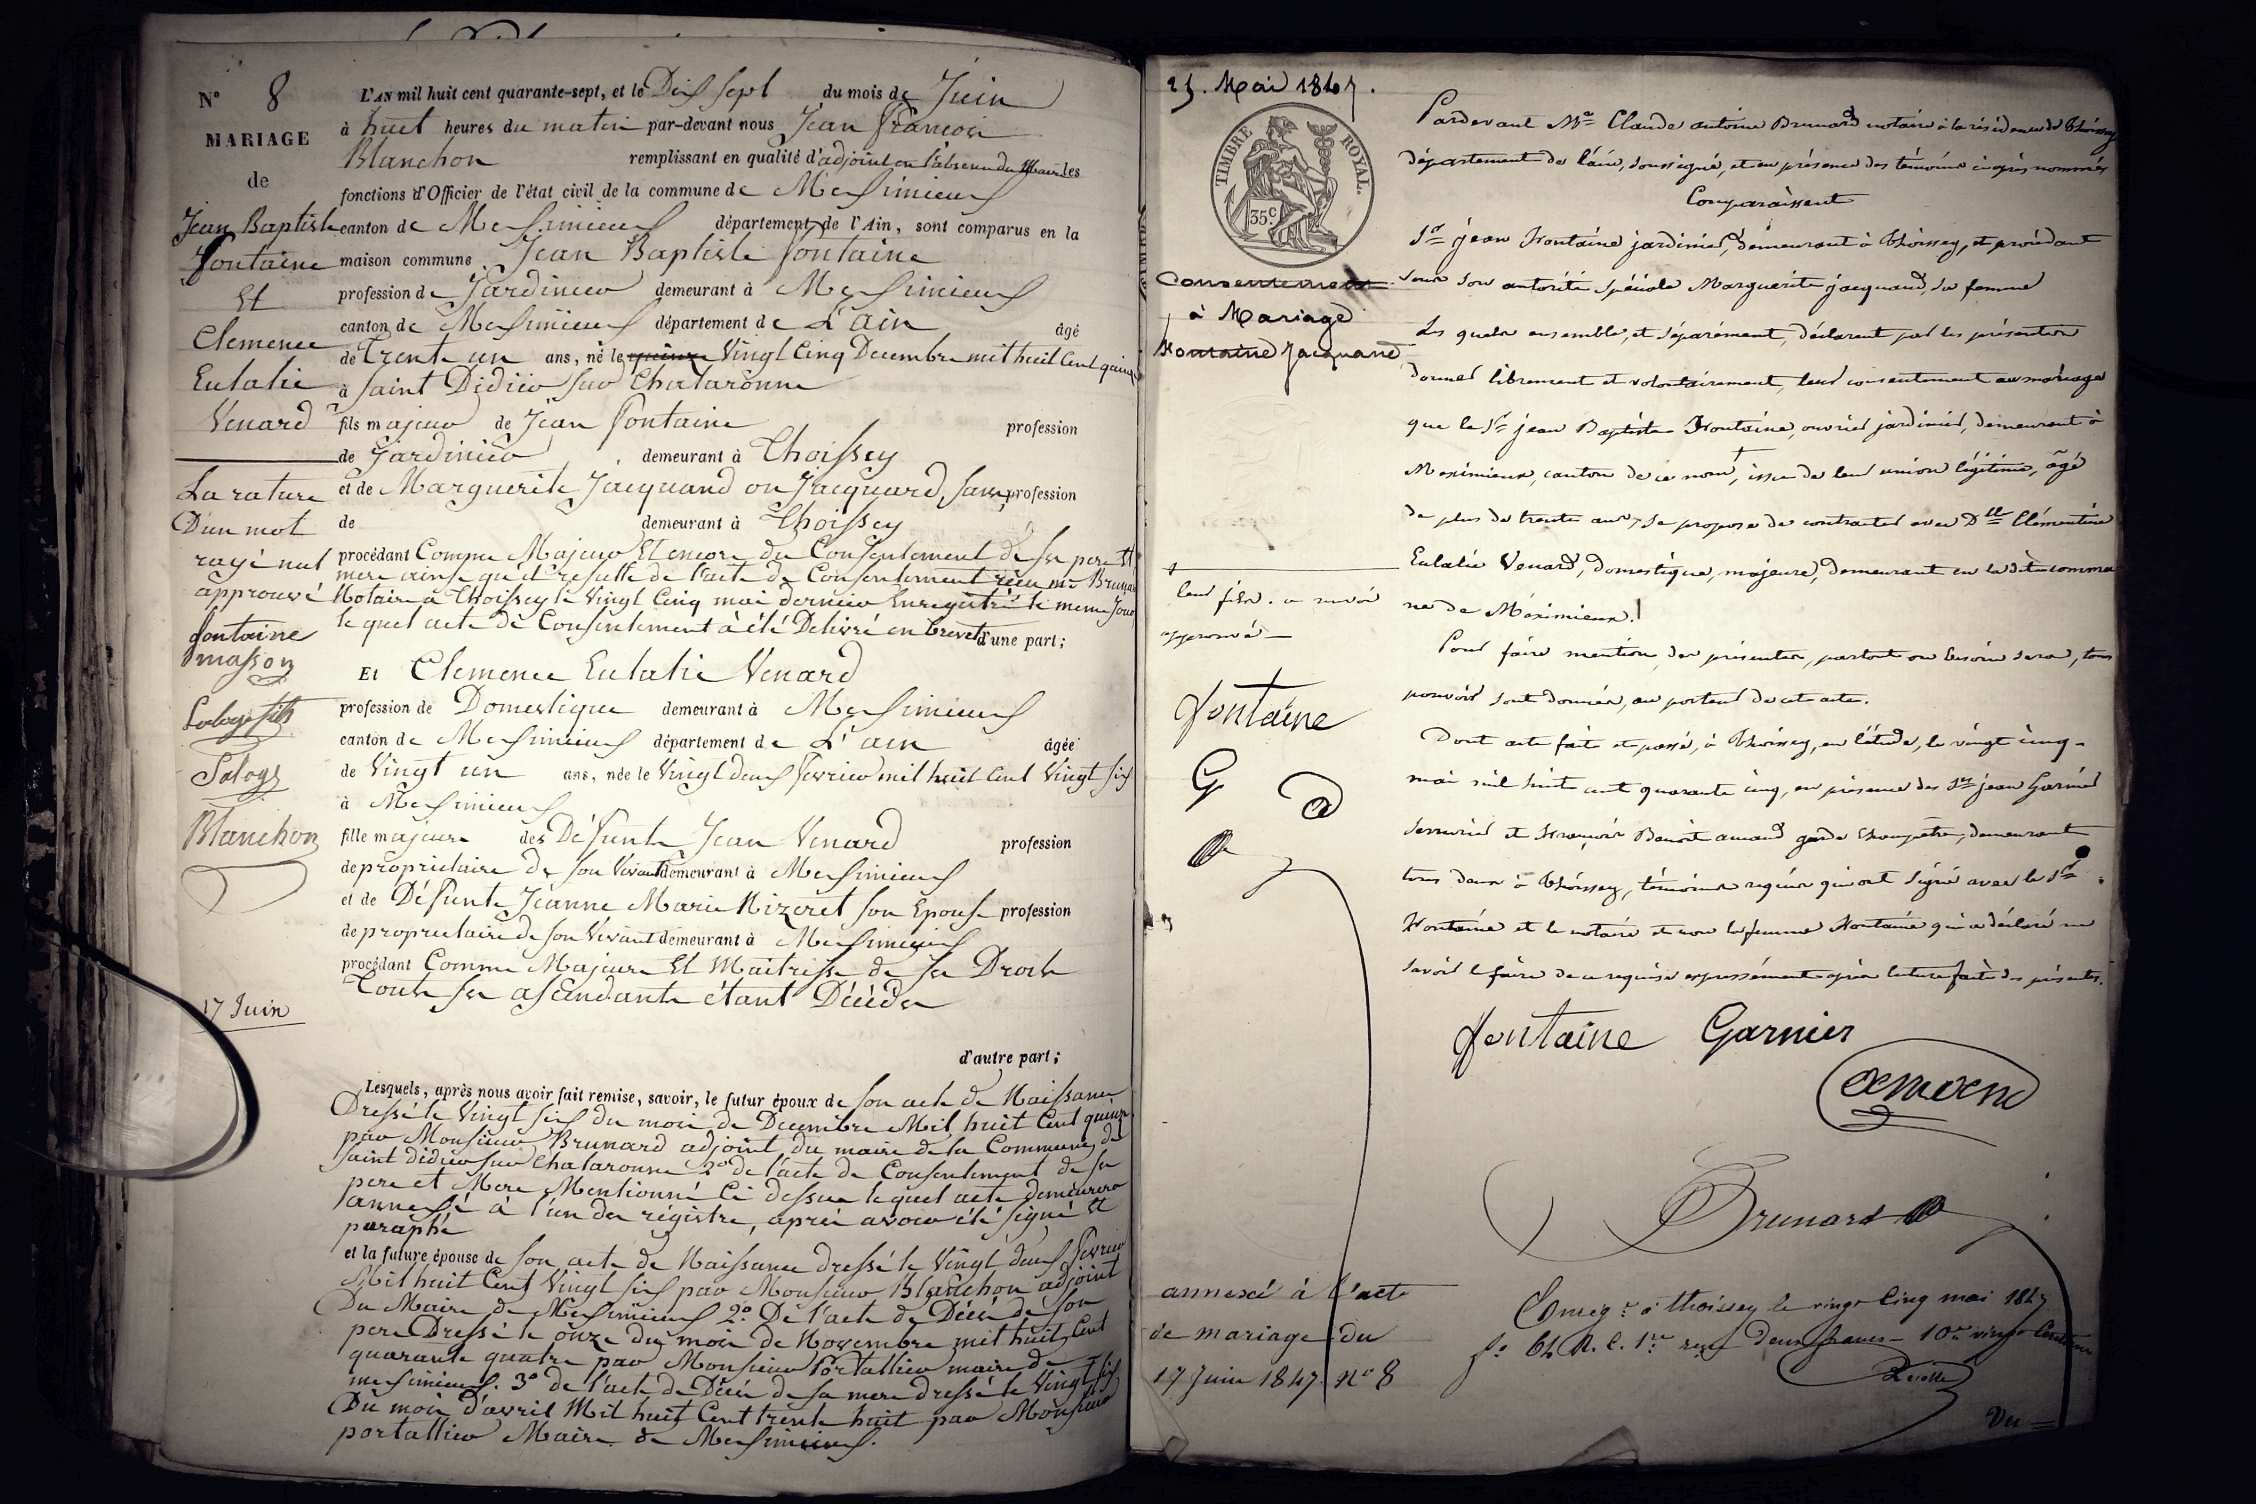 N° 8
MARIAGE
de
Jean Baptiste
Fontaine
Et
Clemence
Eulalie
Venard
La rature
D'un mot
rayé nul
approuvé
fontaine
masson
Laloge fils
Laloge
Blanchon
17 Juin
L'AN mil huit cent quarante-sept, et le Dix Sept du mois de Juin
à huit heures du matin par-devant nous Jean francois
Blanchon remplissant en qualité d'adjoint en l'absence du Maire les
fonctions d'Officier de l'état civil de la commune de Meximieux
canton de Meximieux département de l'Ain, sont comparus en la
maison commune Jean Baptiste fontaine
profession de Jardinier demeurant à Meximieux
canton de Meximieux département de L'ain âgé
de trente un ans, né le quinze Vingt Cinq Decembre mil huit Cent quinze
à Saint Didier Sur Chalaronne
fils majeur de Jean fontaine profession
de Jardinier demeurant à Thoissey
et de Marguerite Jacquand ou Jacquard, sans profession
de demeurant à Thoissey
procédant Comme Majeur Et encore du Consentement de ses pere Et
mere ainsi qu'il resulte de l'acte de Consentement reçu me Brunard
Notaire à Thoissey le Vingt Cinq mai dernier Enregistré le meme Jour
le quel acte de Consentement à été Delivré en brevet d'une part;
Et Clemence Eulalie Venard
profession de Domestique demeurant à Meximieux
canton de Meximieux département de L'ain âgée
de Vingt un ans, née le Vingt deux fevrier mil huit Cent Vingt Six
à Meximieux
fille majeure des Défunts Jean Venard profession
de propriétaire de son Vivant demeurant à Meximieux
et de Défunte Jeanne Marie Mizeret son Epouse profession
de propriétaire de son Vivant demeurant à Meximieux
procédant Comme Majeure Et Maîtresse de ses Droits
Tous ses ascendants étant Décédés
d'autre part;
Lesquels, après nous avoir fait remise, savoir, le futur époux de son acte de Naissance
Dressé le Vingt Six du mois de Decembre Mil huit Cent quinze
par Monsieur Brunard adjoint du maire de la Commune de
Saint didier sur Chalaronne 2° de l'acte de Consentement de ses
pere et Mere Mentionné Ci dessus le quel acte demeurera
annexé à l'un des régistres, après avoir été signé et
paraphé
et la future épouse de son acte de Naissance dressé le Vingt deux fevrier
Mil huit Cent Vingt six par Monsieur Blanchon adjoint
Du Maire de Meximieux 2° De l'acte de Décès de son
pere Dressé le onze du mois de Novembre mil huit Cent
quarante quatre par Monsieur Portallier maire de
meximieux. 3° de l'acte de Décès de sa mere dressé le Vingt six
Du mois d'avril Mil huit Cent trente huit par Monsieur
portallier Maire de Meximieux.
25. Mai 1847.
TIMBRE ROYAL.
35 c
Consentement
à Mariage
Fontaine Jacquand
leur fils. a renvoi
approuvé
fontaine
G a
annexé à l'acte
de mariage du
17 Juin 1847. N° 8
Pardevant Me Claude antoine Brunard notaire à la résidence de Thoissey
département de l'ain, soussigné, et en présence des témoins ci après nommés
Comparaissent
Sr jean Fontaine jardinier, demeurant à Thoissey, et procédant
sous son autorité spéciale Marguerite jacquand, sa femme
Les quels ensemble, et séparément, déclarent par les présentes
donner librement et volontairement, leur consentement au mariage
que le Sr jean Baptiste Fontaine, ouvrier jardinier, demeurant à
Meximieux, canton de ce nom, issu de leur union légitime, âgé
de plus de trente ans, se propose de contracter avec Dlle Clémentine
Eulalie Venard, domestique, majeure, demeurant en la dite commu
ne de Méximieux.
Pour faire mention des présentes, partout ou besoin sera, tous
pouvoirs sont donnés, au porteur de cet acte.
Dont acte fait et passé, à Thoissey, en l'étude, le vingt cinq
mai mil huit cent quarante cinq, en présence des Srs jean Garnier
serrurier et François Benoit amand garde champêtre, demeurant
tous deux à Thoissey, témoins requis qui ont signé avec le Sr
Fontaine et le notaire et non la femme Fontaine qui a déclaré ne
savoir le faire de ce requise expressément après lecture faite des présentes.
fontaine Garnier
amand
Brunard
Enregé à Thoissey le vingt Cinq mai 1847
fo 64 R. C. 1re reçu deux francs 10me vingt Centimes
Vu